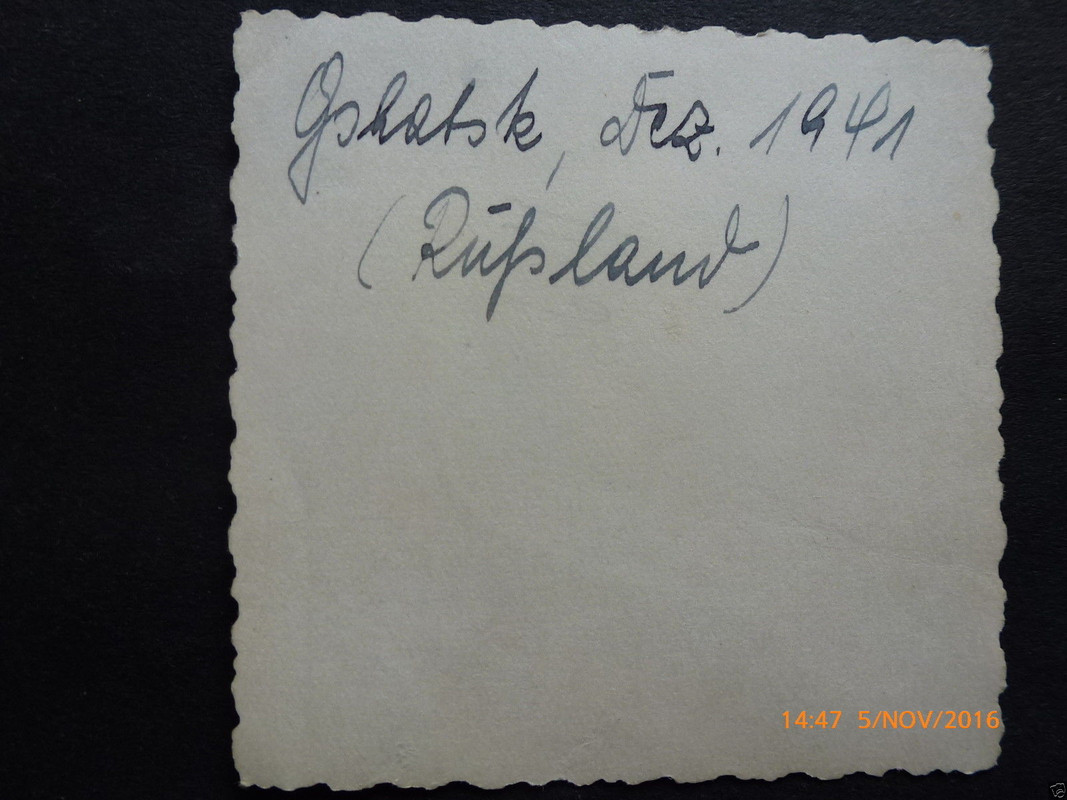 Gshatsk, Dez. 1941
(Rußland)
14:47 5/NOV/2016